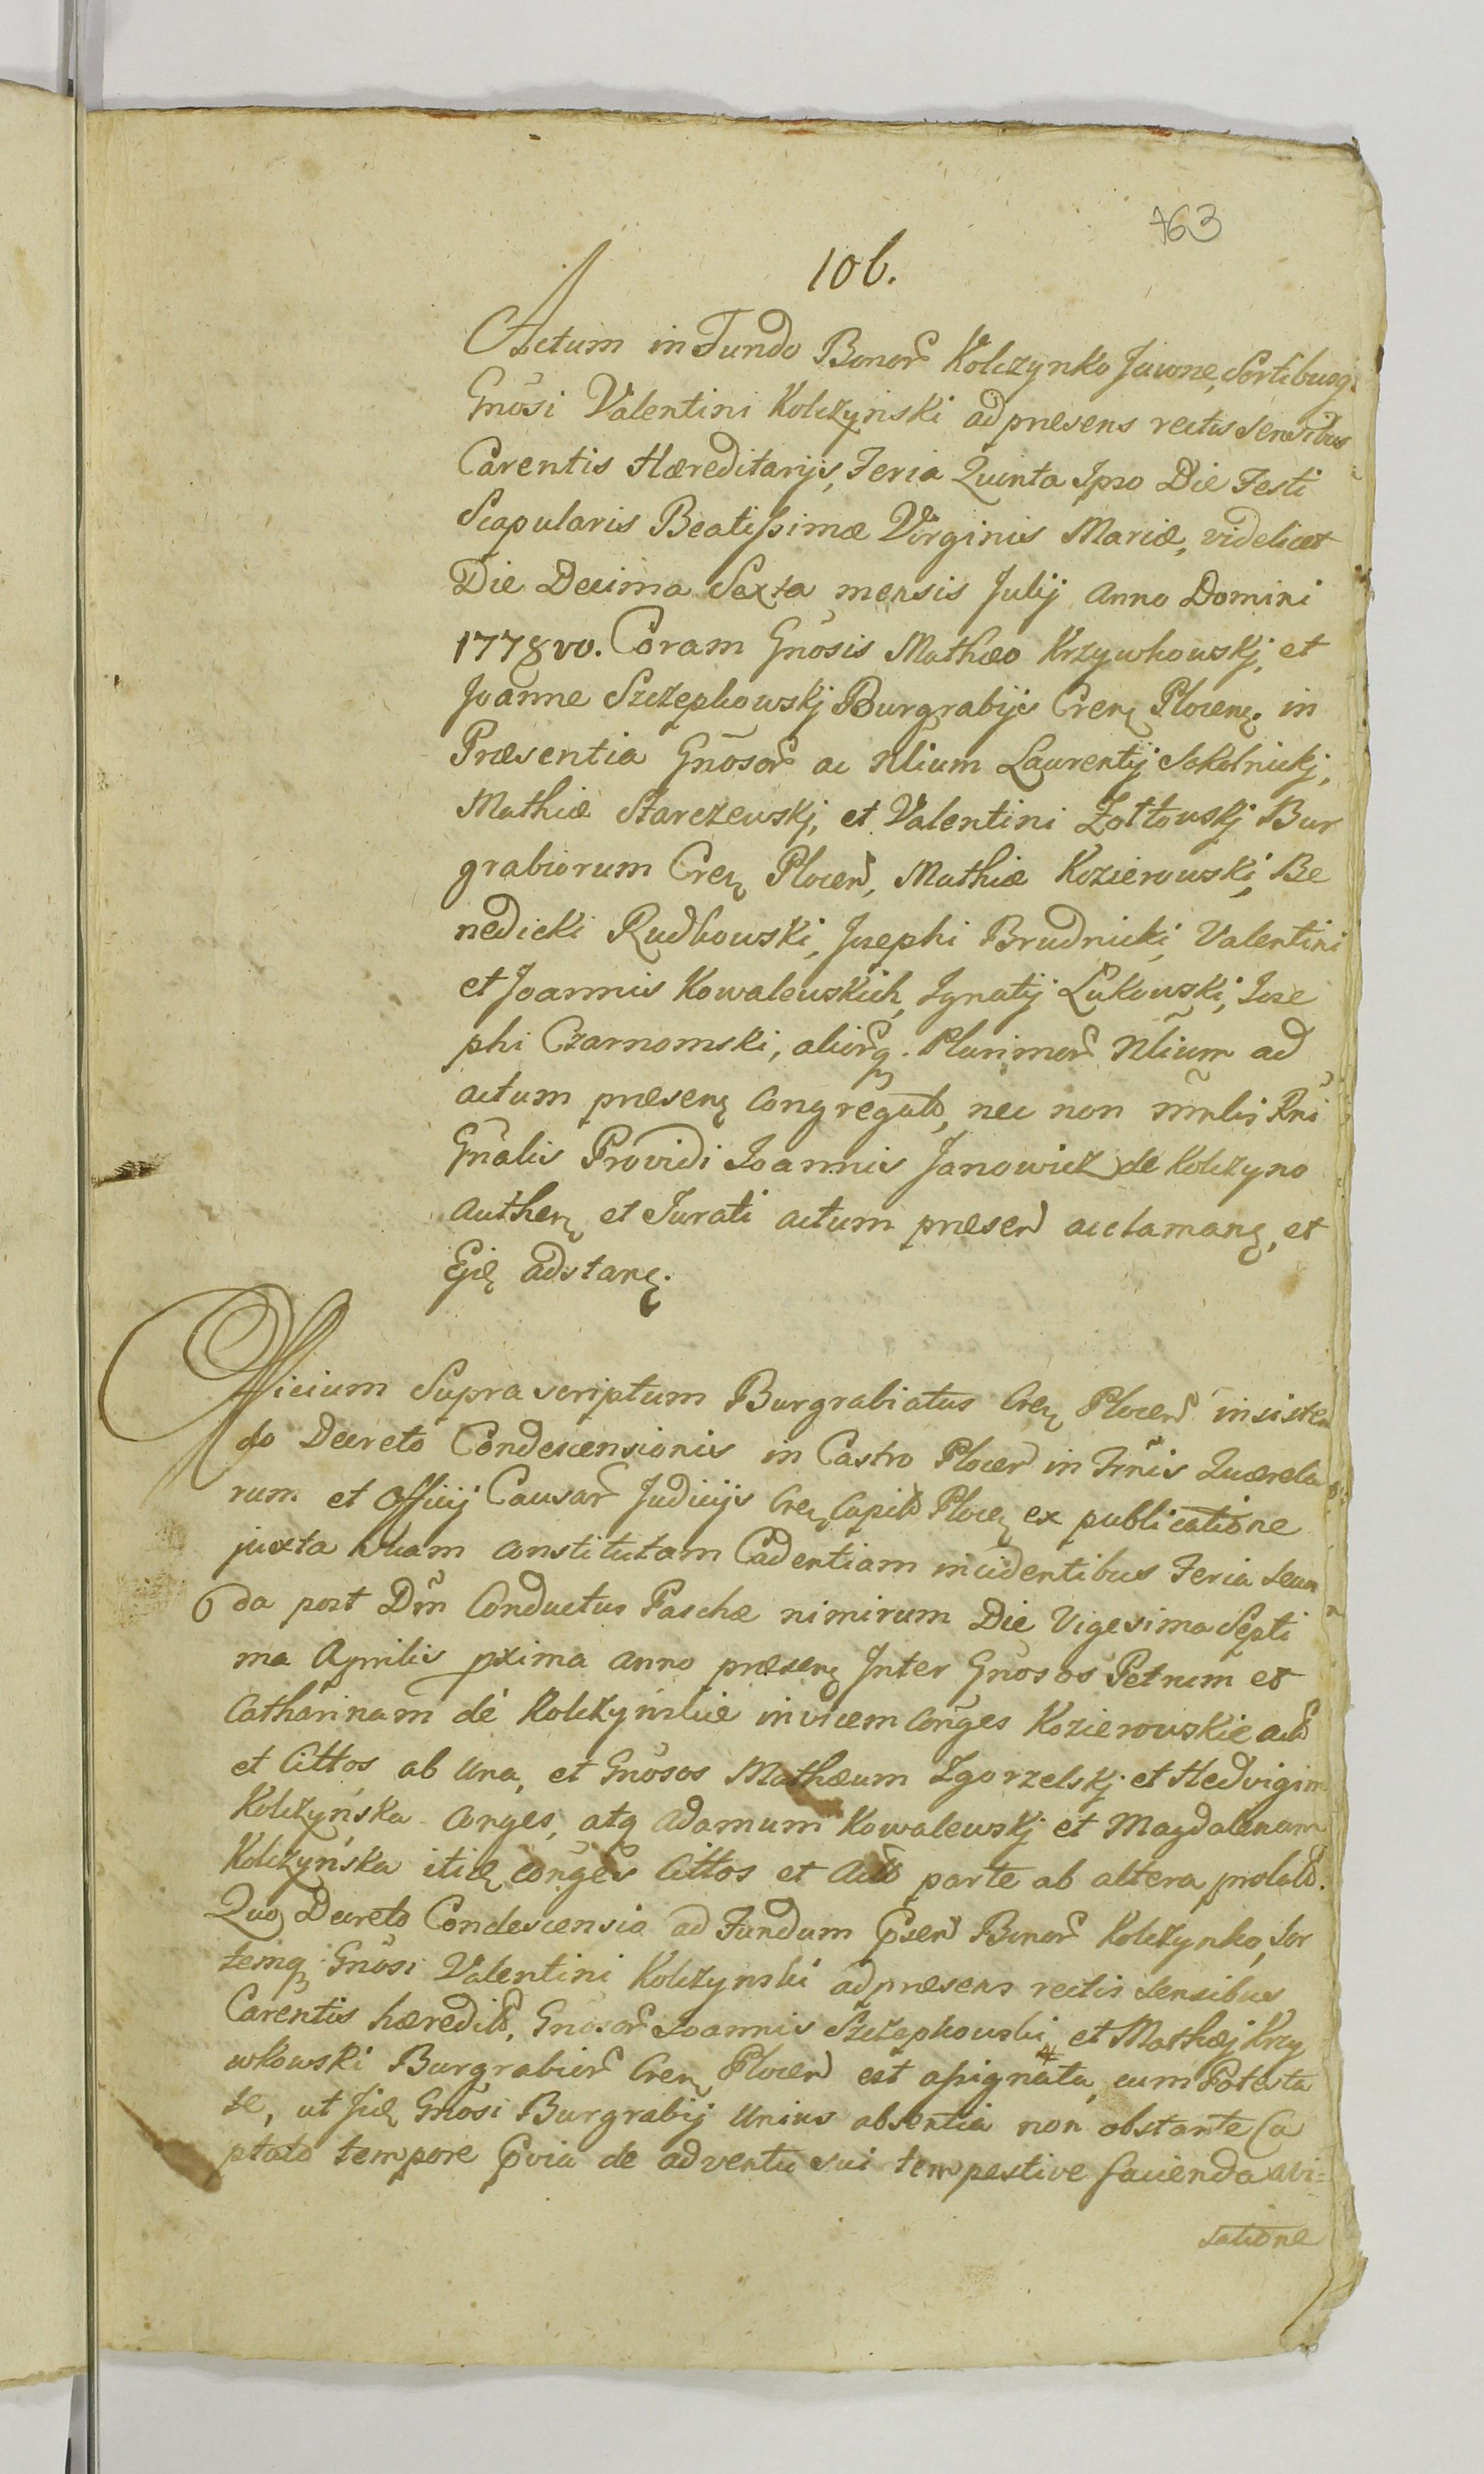 763
106.
Actum in Fundo Bonor Kolczynko Jawone, Sortibusq
Gnosi Valentini Kolczynski ad præsens rectis Sensibus
Carentis Hæreditarijs, Feria Quinta Ipso Die Festi
Scapularis Beatissimæ Virginis Mariæ, videlicet
Die Decima Sexta mensis Julij anno Domini
1778vo. Coram Gnosis Mathæo Krzywkowskj, et
Joanne Szczepkowskj Burgrabijs Cren Plocen. in
Præsentia Gnosor ac Nlium Laurentij Sokolnickj,
Mathiæ Starczewskj, et Valentini Zołtowskj Bur
grabiorum Cren Plocen, Mathiæ Kozierowski, Be
nedicti Rudkowski, Josephi Brudnicki, Valentini
et Joannis Kowalewskich, Ignatij Łukowski, Jose
phi Czarnomski, aliorq. Plurimor Nlium ad
actum præsen congregato, nec non mnlis Rni
Gnalis Providi Joannis Janowicz de Kolczyno
authen et Jurati actum præsen acclaman, et
Ejd adstan.
Officium Supra scriptum Burgrabiatus Cren Plocen insisten
do Decreto Condescensionis in Castro Plocen in Trnis Querela
rum et Officij Causar Judicijs Cren Capit Plocen ex publicatione
juxta Nuam constitutam Cadentiam incidentibus Feria Secun
da post Dm Conductus Paschæ nimirum Die Vigesima Septi
ma Aprilis pxima anno præsen Inter Gnosos Petrum et
Catharinam de Kolczynskie invicem conges Kozierowskie act
et Cittos ab una, et Gnosos Mathæum Zgorzelskj et Hedvigim
Kolczyńska conges, atq Adamum Kowalewskj et Magdalenam
Kolczyńska itid conges Cittos et act parte ab altera prolato.
Quo Decreto Condescensio ad Fundum psen Bonor Kolczynko, Sor
temq Gnosi Valentini Kolczynski ad præsens rectis Sensibus
Carentis hæredit, Gnosor Joannis Szczepkowski, et Mathæj Krzy
wkowski Burgrabior Cren Plocen est assignata, cum Potesta
te, ut Jid Gnosi Burgrabij unius absentia non obstante Ca
ptato tempore pvia de adventu sui tempestive facienda avi=
satione